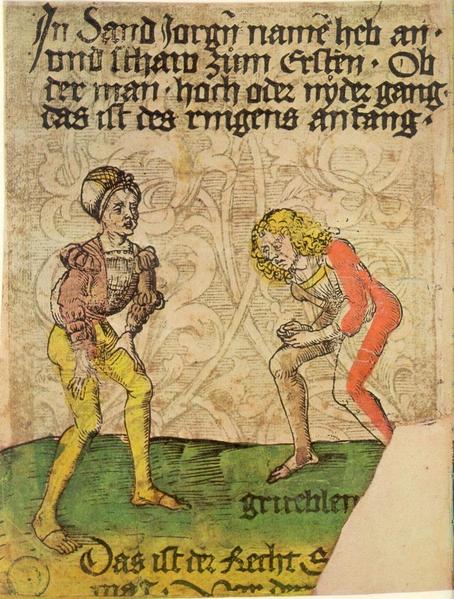 In Sand Jorgñ namē heb an ·
vnd schaw zum Ersten · Ob
der man · hoch oder nyder gang ·
das ist des ringens anfang ·
grueblen
Das ist der Recht S